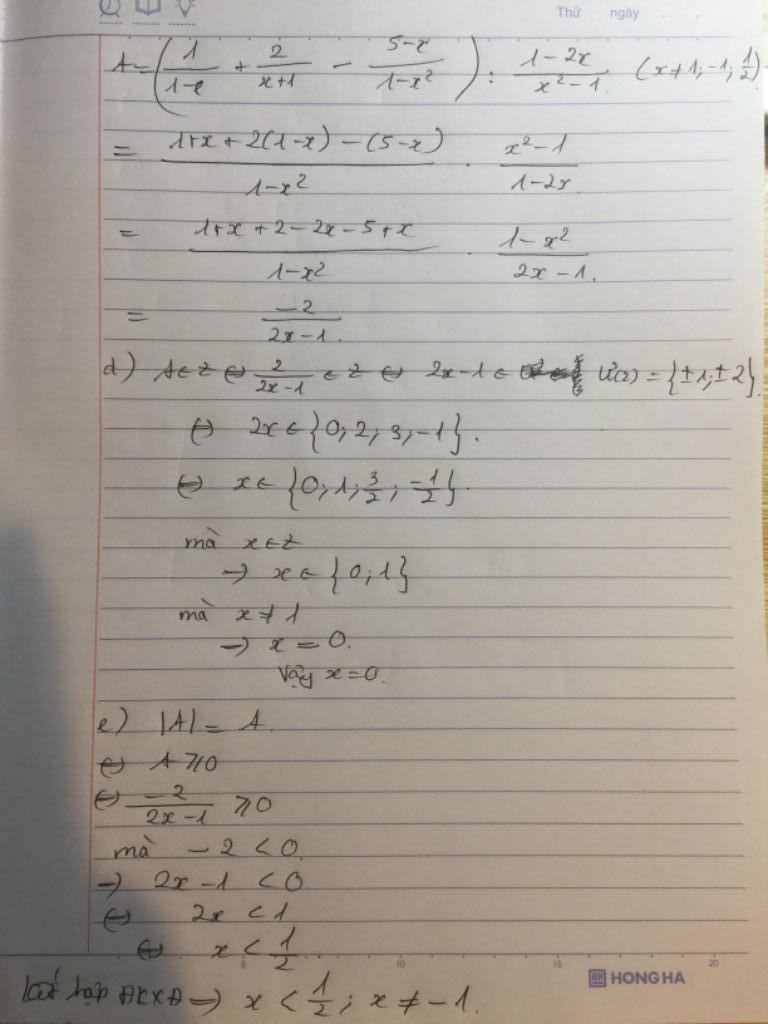 Thứ ngày
A = (1/(1-x) + 2/(x+1) - (5-x)/(1-x²)) : (1-2x)/(x²-1) (x≠1; -1; 1/2)
= (1+x+2(1-x)-(5-x))/(1-x²) . (x²-1)/(1-2x)
= (1+x+2-2x-5+x)/(1-x²) . (1-x²)/(2x-1).
= -2/(2x-1).
d) A∈Z ⇔ 2/(2x-1) ∈ Z ⇔ 2x-1 ∈ Ư(2) = {±1; ±2}.
⇔ 2x ∈ {0; 2; 3; -1}.
⇔ x ∈ {0; 1; 3/2; -1/2}.
mà x∈Z
→ x ∈ {0; 1}
mà x≠1
→ x = 0.
Vậy x=0.
e) |A| = A.
⇔ A ≥ 0
⇔ -2/(2x-1) ≥ 0
mà -2 < 0
→ 2x-1 < 0
⇔ 2x < 1
⇔ x < 1/2
5 10 20
HONG HA
Kết hợp ĐKXĐ → x < 1/2; x ≠ -1.